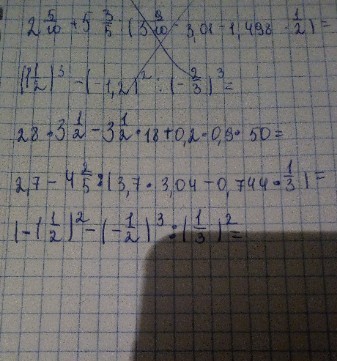 2 5/10 + 5 3/5 · (3 9/10 · 3,01 - 1,498 · 1/2) =
(1 1/2)³ - (-1,2)² : (-2/3)³ =
28 · 3 1/2 - 3 1/2 · 18 + 0,2 · 0,9 · 50 =
2,7 - 4 2/5 : (3,7 · 3,04 - 0,744 · 1/3) =
(-(1/2)² - (-1/2)³ : (1/3)² =